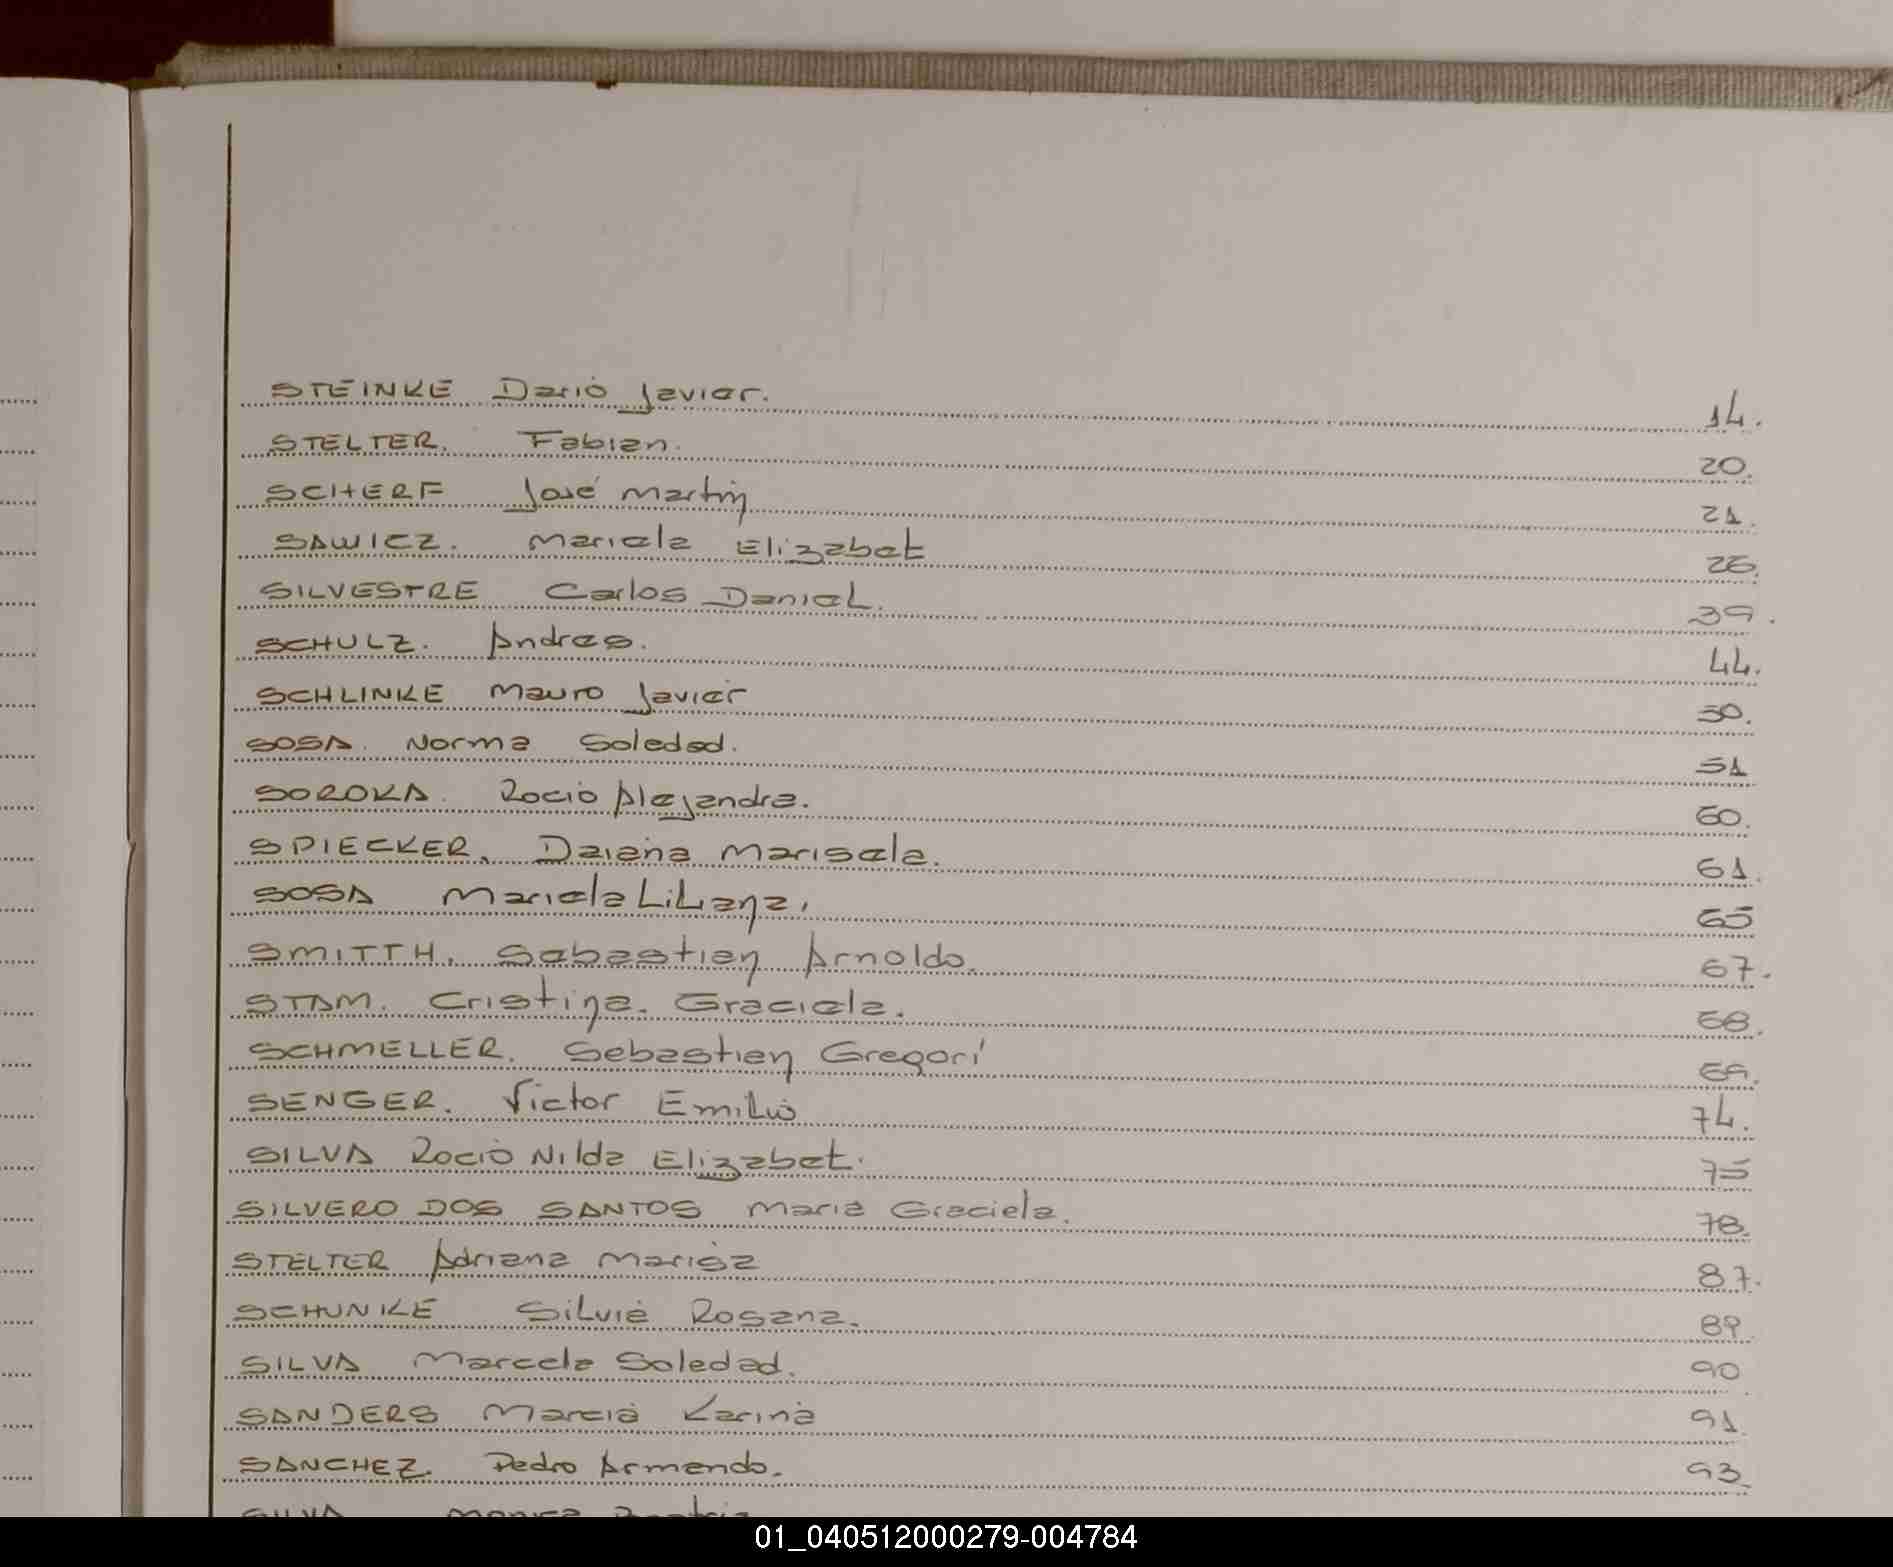 STEINKE Dario Javier. 14.
STELTER. Fabian. 20.
SCHERF José Martin 21.
SAWICZ. Mariela Elizabet 26.
SILVESTRE Carlos Daniel. 39.
SCHULZ. Andres. 44.
SCHLINKE Mauro Javier 50.
SOSA. Norma Soledad. 51
SOROKA. Rocio Alejandra. 60.
SPIECKER. Daiana Marisela. 61.
SOSA Mariela Liliana. 65
SMITTH. Sebastian Arnoldo. 67.
STAM. Cristina. Graciela. 68.
SCHMELLER. Sebastian Gregori 69.
SENGER. Victor Emilio 74.
SILVA Rocio Nilda Elizabet. 75
SILVERO DOS SANTOS Maria Graciela. 78.
STELTER Adriana Marisa 87.
SCHUNKE Silvia Rosana. 89.
SILVA Marcela Soledad. 90
SANDERS Marcia Karina 91.
SANCHEZ. Pedro Armando. 93.
SILVA Monica Beatriz
01_040512000279-004784